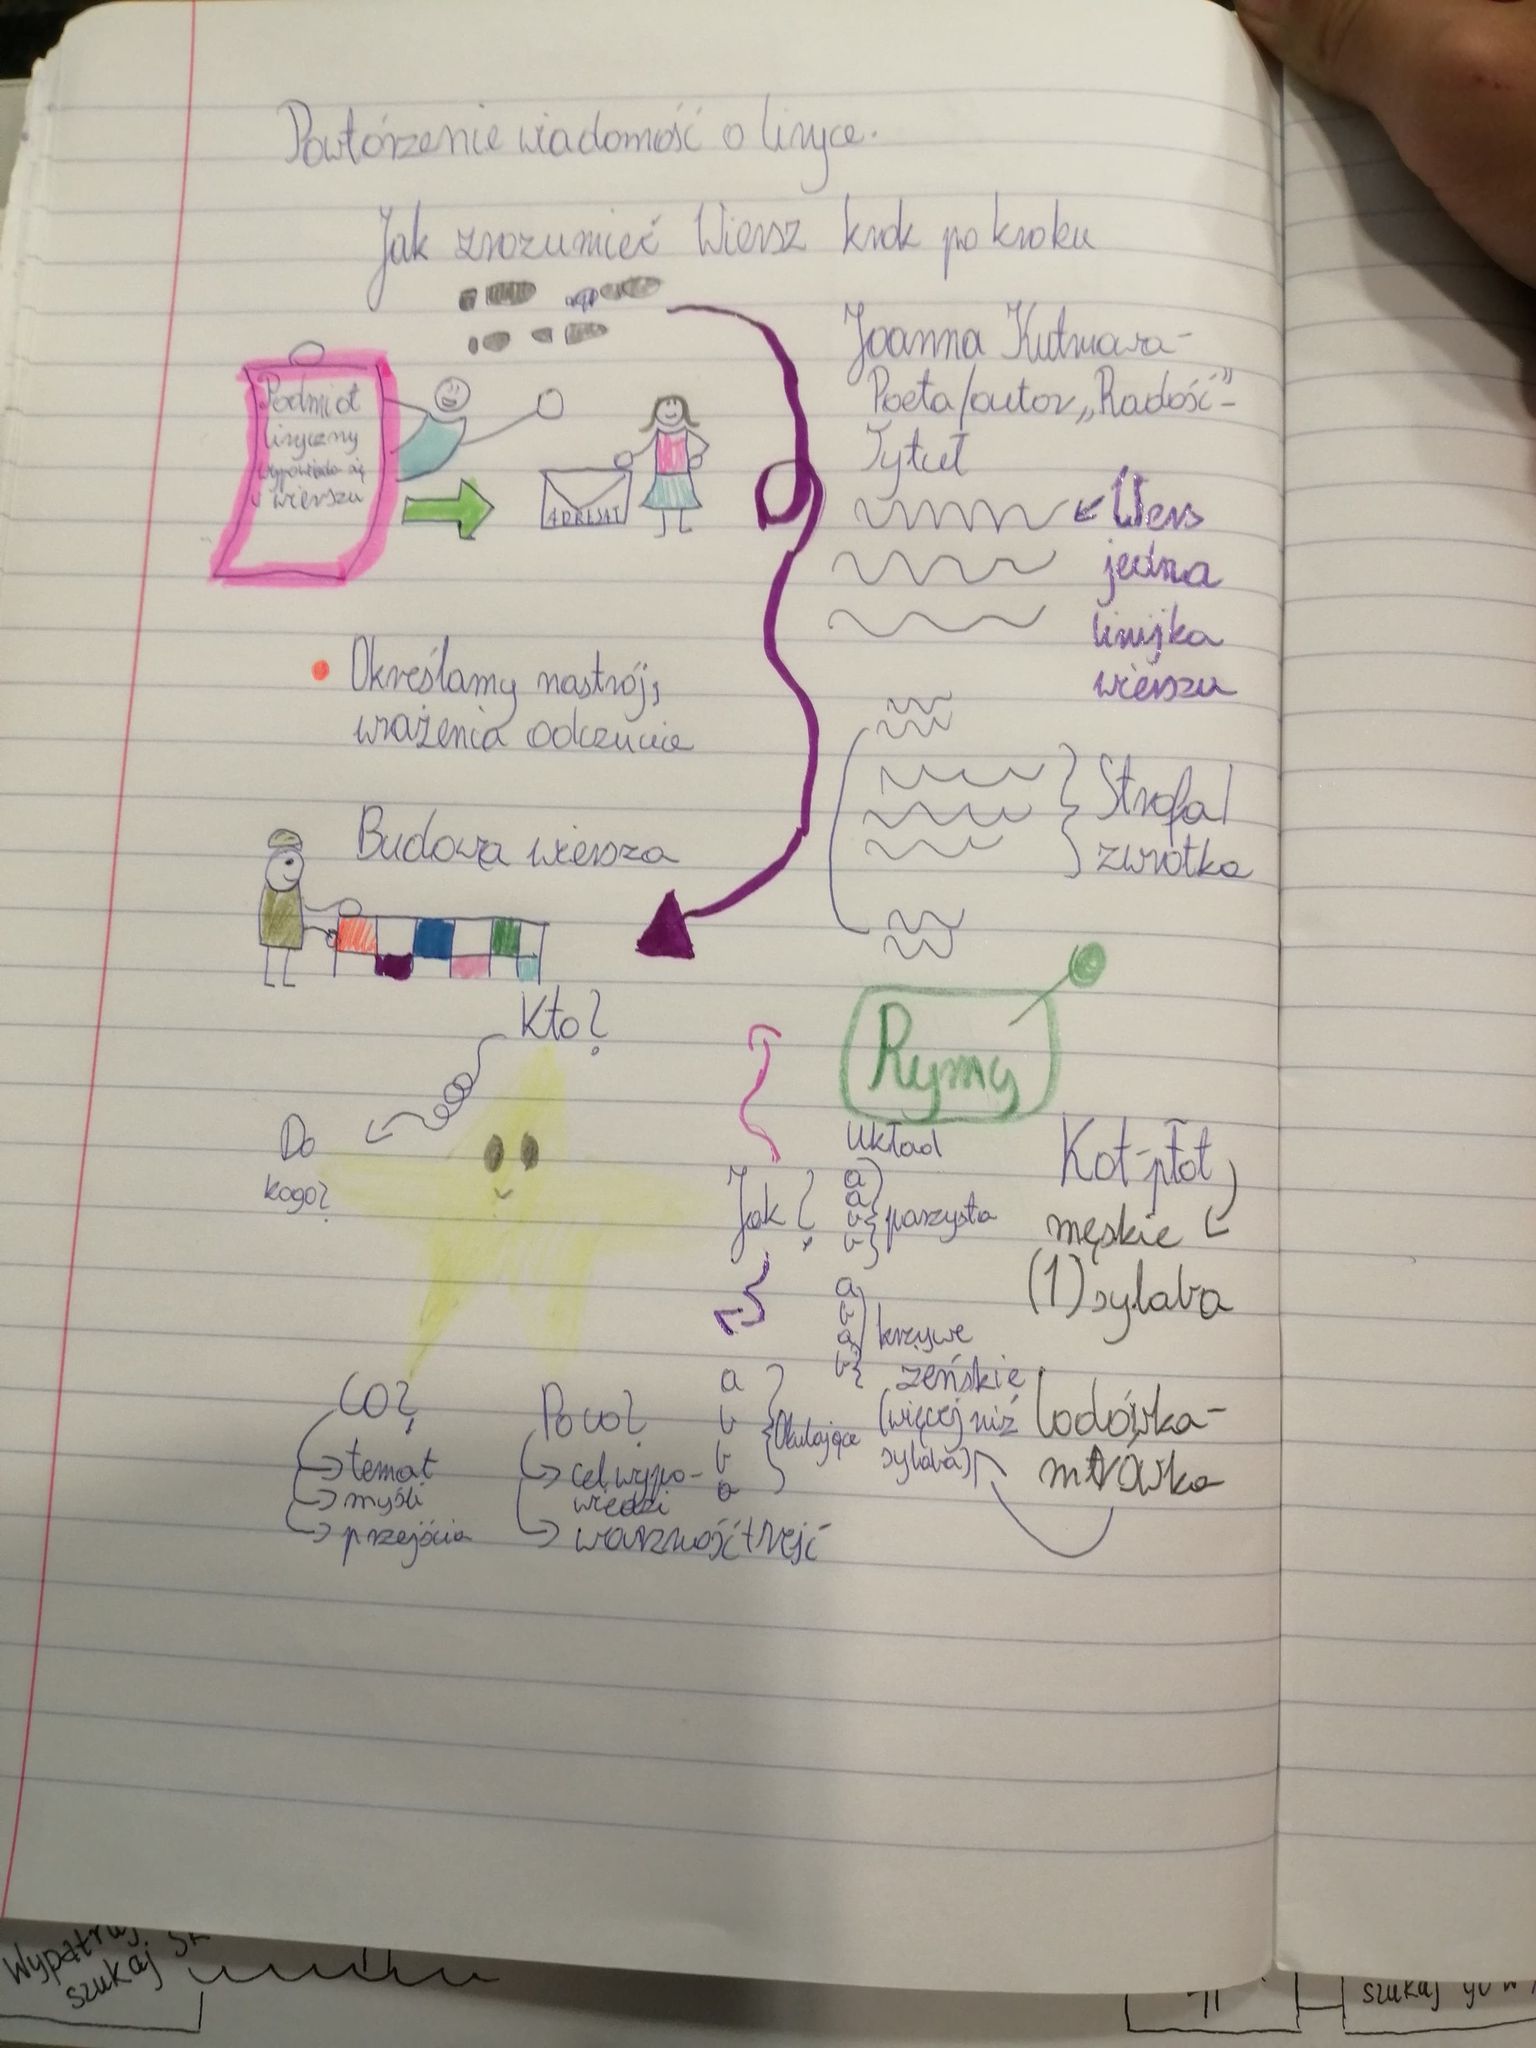 Powtórzenie wiadomość o liryce.
Jak zrozumieć Wiersz krok po kroku
Podmiot
liryczny
wypowiada się
w wierszu
ADRESAT
Joanna Kulmowa-
Poeta/autor „Radość"-
Tytuł
Wers
jedna
linijka
wiersza
• Określamy nastrój,
wrażenia odczucie
Strofa/
zwrotka
Budowa wiersza
Kto?
Do
kogo?
Jak?
Co?
temat
myśli
przejścia
Po co?
cel wypo-
wiedzi
Rymy
układ
a
a
b
b
parzyste
a
b
a
b
krzywe
a
b
b
a
Okalające
Kot-płot
męskie
(1) sylaba
żeńskie
(więcej niż
sylaba)
lodówka-
mrówka
Wypatruj
szukaj
szukaj